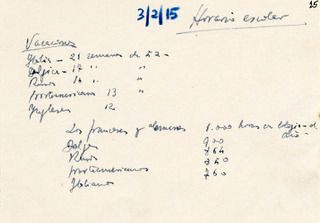 15
3/2/15
Horario escolar
Vacaciones
Italia - 21 semanas de 52 -
Belgica - 17 " "
Rusos 16 " "
Norteamericanos 13 "
Ingleses 12
Los franceses y alemanes 1.000 horas en colegio - al año -
Belgas 900
Rusos 864
Norteamericanos 860
Italianos 760